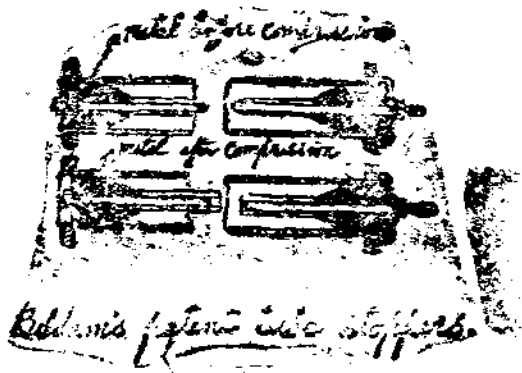 metal before compression
metal after compression
patent tube stoppers.